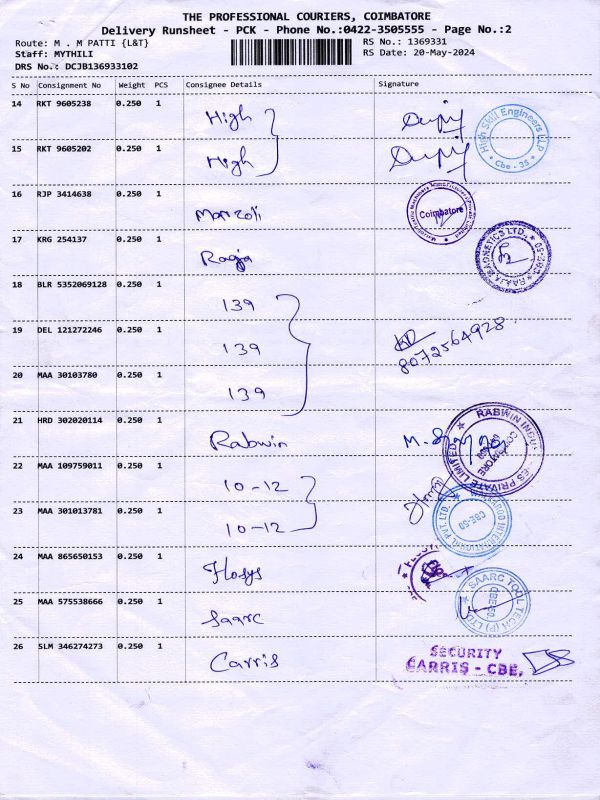 THE PROFESSIONAL COURIERS, COIMBATORE
Delivery Runsheet - PCK - Phone No.:0422-3505555 - Page No.:2
Route: M . M PATTI {L&T}
RS No.: 1369331
Staff: MYTHILI
RS Date: 20-May-2024
DRS No.: DCJB136933102
S No Consignment No Weight PCS Consignee Details Signature
14 RKT 9605238 0.250 1 High
High Skill Engineers LLP Cbe - 35
15 RKT 9605202 0.250 1 High
16 RJP 3414638 0.250 1
Coimbatore
17 KRG 254137 0.250 1 Raja
RAAJA MAGNETICS LTD.
18 BLR 5352069128 0.250 1 139
19 DEL 121272246 0.250 1 139 8072564928
20 MAA 30103780 0.250 1 139
21 HRD 302020114 0.250 1 Rabwin
RABWIN PRIVATE LIMITED
22 MAA 109759011 0.250 1 10-12
23 MAA 301013781 0.250 1 10-12
CBE-50
24 MAA 865650153 0.250 1
25 MAA 575538666 0.250 1 Saarc
SAARC TOOL TECH (P) LTD CBE-50
26 SLM 346274273 0.250 1 Carris
SECURITY
CARRIS - CBE.